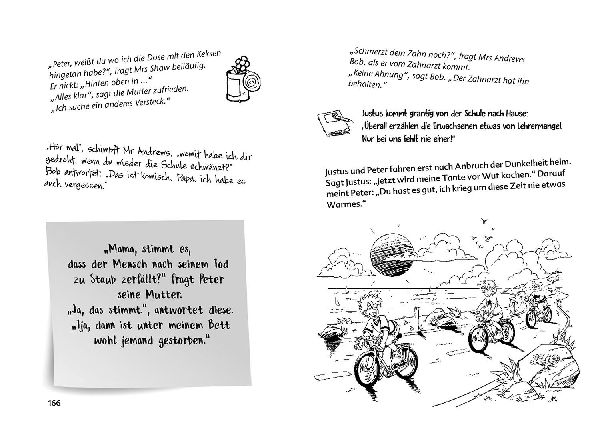 „Peter, weißt du wo ich die Dose mit den Keksen
hingetan habe?“, fragt Mrs Shaw beiläufig.
Er nickt. „Hinten oben in ...“
„Alles klar“, sagt die Mutter zufrieden.
„Ich suche ein anderes Versteck.“
„Hör mal“, schimpft Mr Andrews, „womit habe ich dir
gedroht, wenn du wieder die Schule schwänzt?“
Bob antwortet: „Das ist komisch, Papa, ich habe es
auch vergessen.“
„Mama, stimmt es,
dass der Mensch nach seinem Tod
zu Staub zerfällt?“ fragt Peter
seine Mutter.
„Ja, das stimmt.“, antwortet diese.
„Tja, dann ist unter meinem Bett
wohl jemand gestorben.“
166
„Schmerzt dein Zahn noch?“, fragt Mrs Andrews
Bob, als er vom Zahnarzt kommt.
„Keine Ahnung“, sagt Bob. „Der Zahnarzt hat ihn
behalten.“
Justus kommt grantig von der Schule nach Hause:
„Überall erzählen die Erwachsenen etwas von Lehrermangel.
Nur bei uns fehlt nie einer!“
Justus und Peter fuhren erst nach Anbruch der Dunkelheit heim.
Sagt Justus: „Jetzt wird meine Tante vor Wut kochen.“ Darauf
meint Peter: „Du hast es gut, ich krieg um diese Zeit nie etwas
Warmes.“